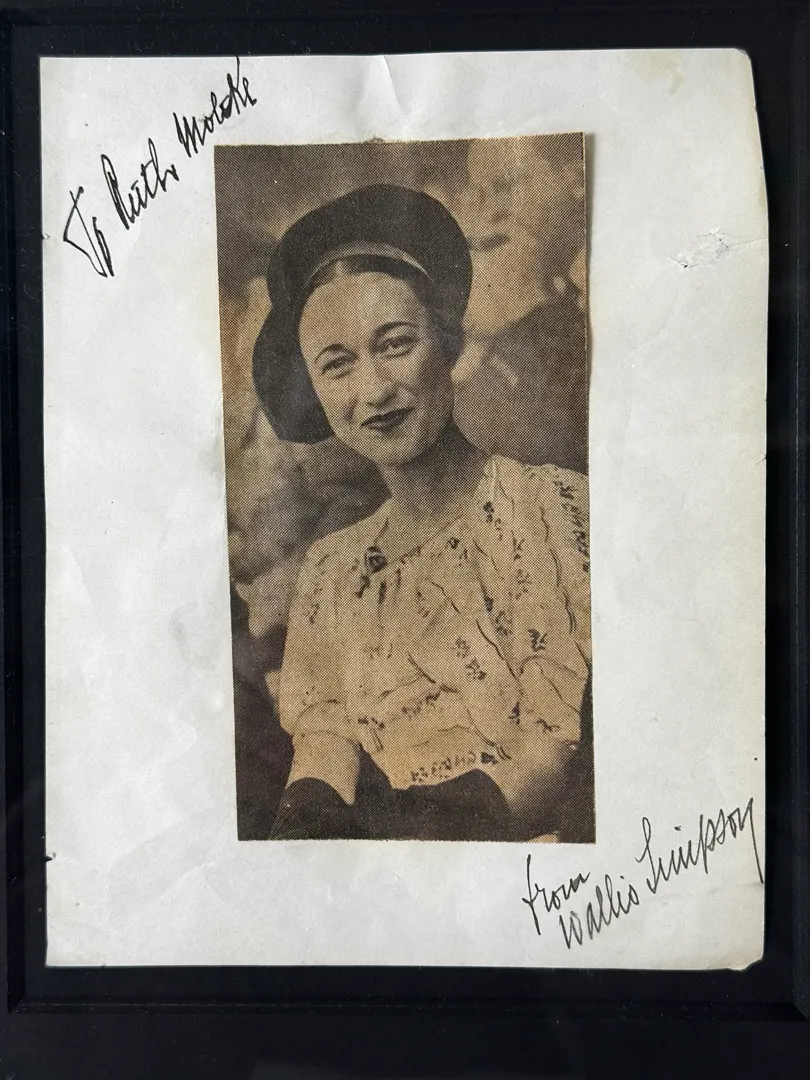 To Ruth Moltke
from
Wallis Simpson